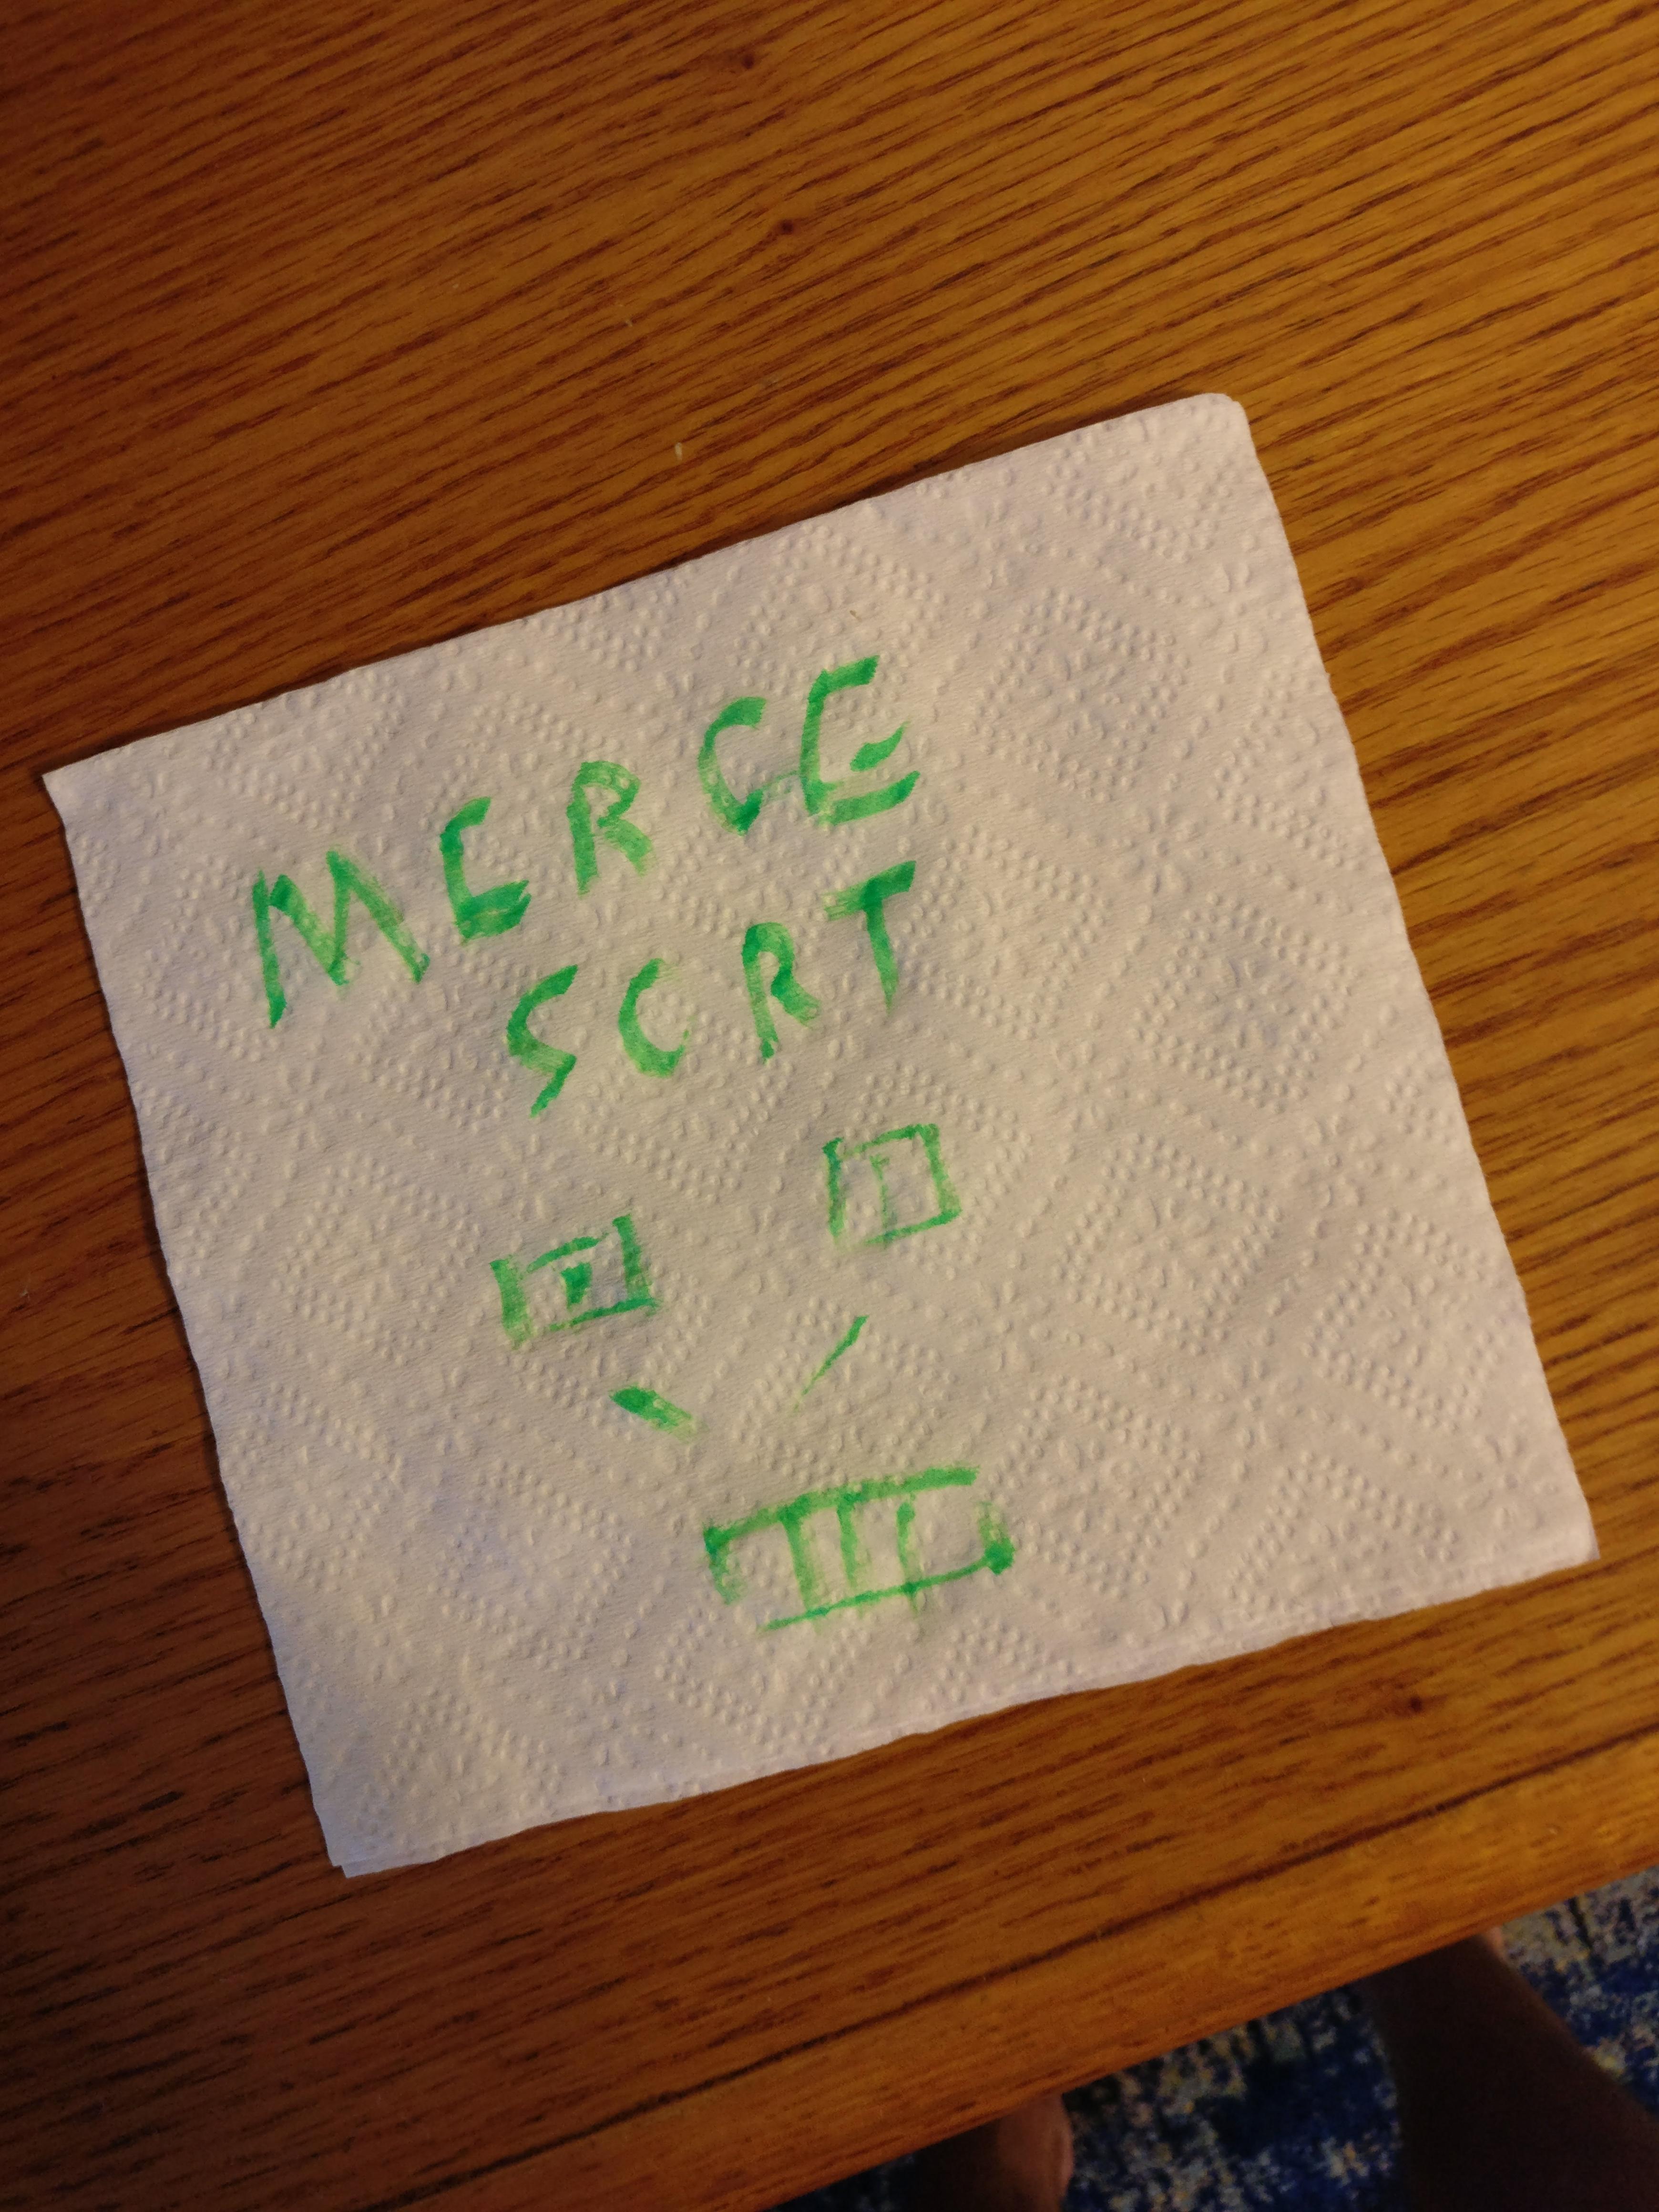 MERGE
SORT